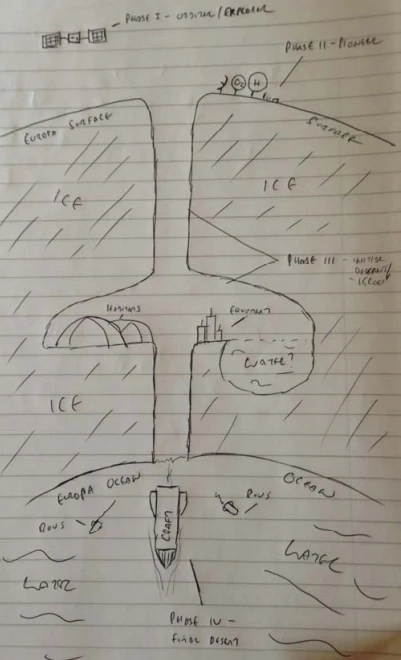 PHASE I - ORBITER/EXPLORER
PHASE II - PIONEER
O2
H
EUROPA SURFACE
SURFACE
ICE
ICE
PHASE III - INITIAL
DESCENT/
HABITATS
EQUIPMENT
WATER?
ICE
EUROPA OCEAN
OCEAN
ROVS
ROVS
CRAFT
WATER
WATER
PHASE IV -
FINAL DESENT